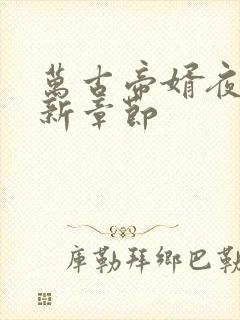 萬古帝婿夜
新章節
庫勒拜鄉巴勒